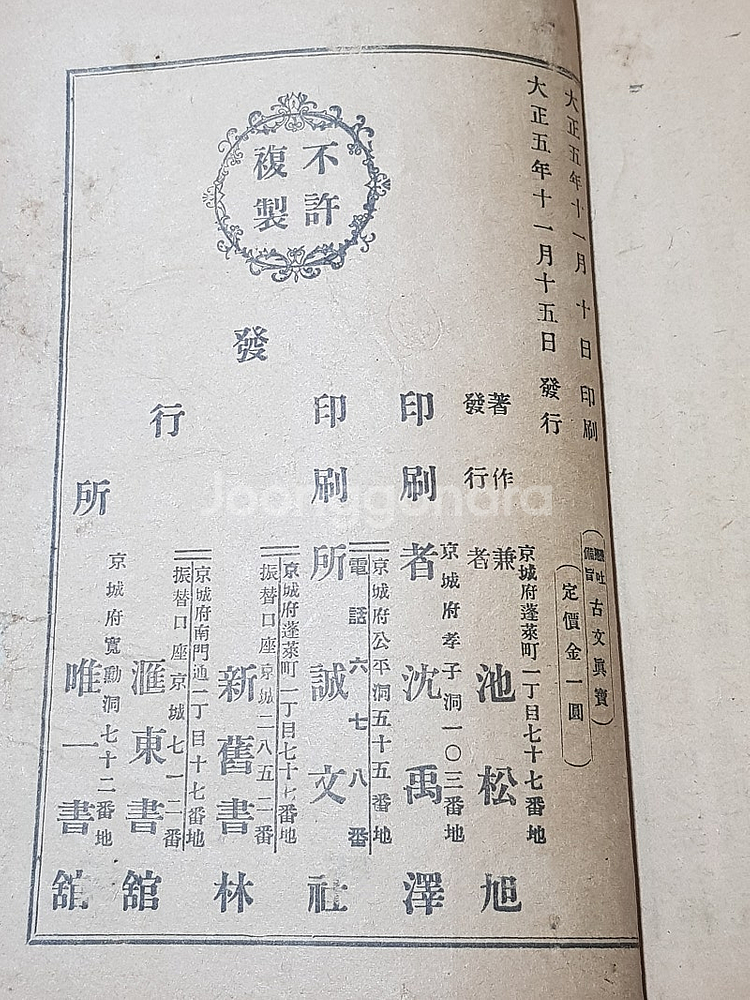 大正五年十一月十日印刷
大正五年十一月十五日發行
懸吐
備旨
古文眞寶
定價金一圓
京城府蓬萊町一丁目七十七番地
著作兼
發行者
池松旭
京城府孝子洞一〇三番地
印刷者
沈禹澤
京城府公平洞五十五番地
電話六七八番
印刷所
誠文社
京城府蓬萊町一丁目七十七番地
振替口座京城二八五二番
新舊書林
京城府南門通一丁目十七番地
振替口座京城七一二番
滙東書舘
京城府寬勳洞七十二番地
唯一書舘
發行所
不許
複製
Joonggonara